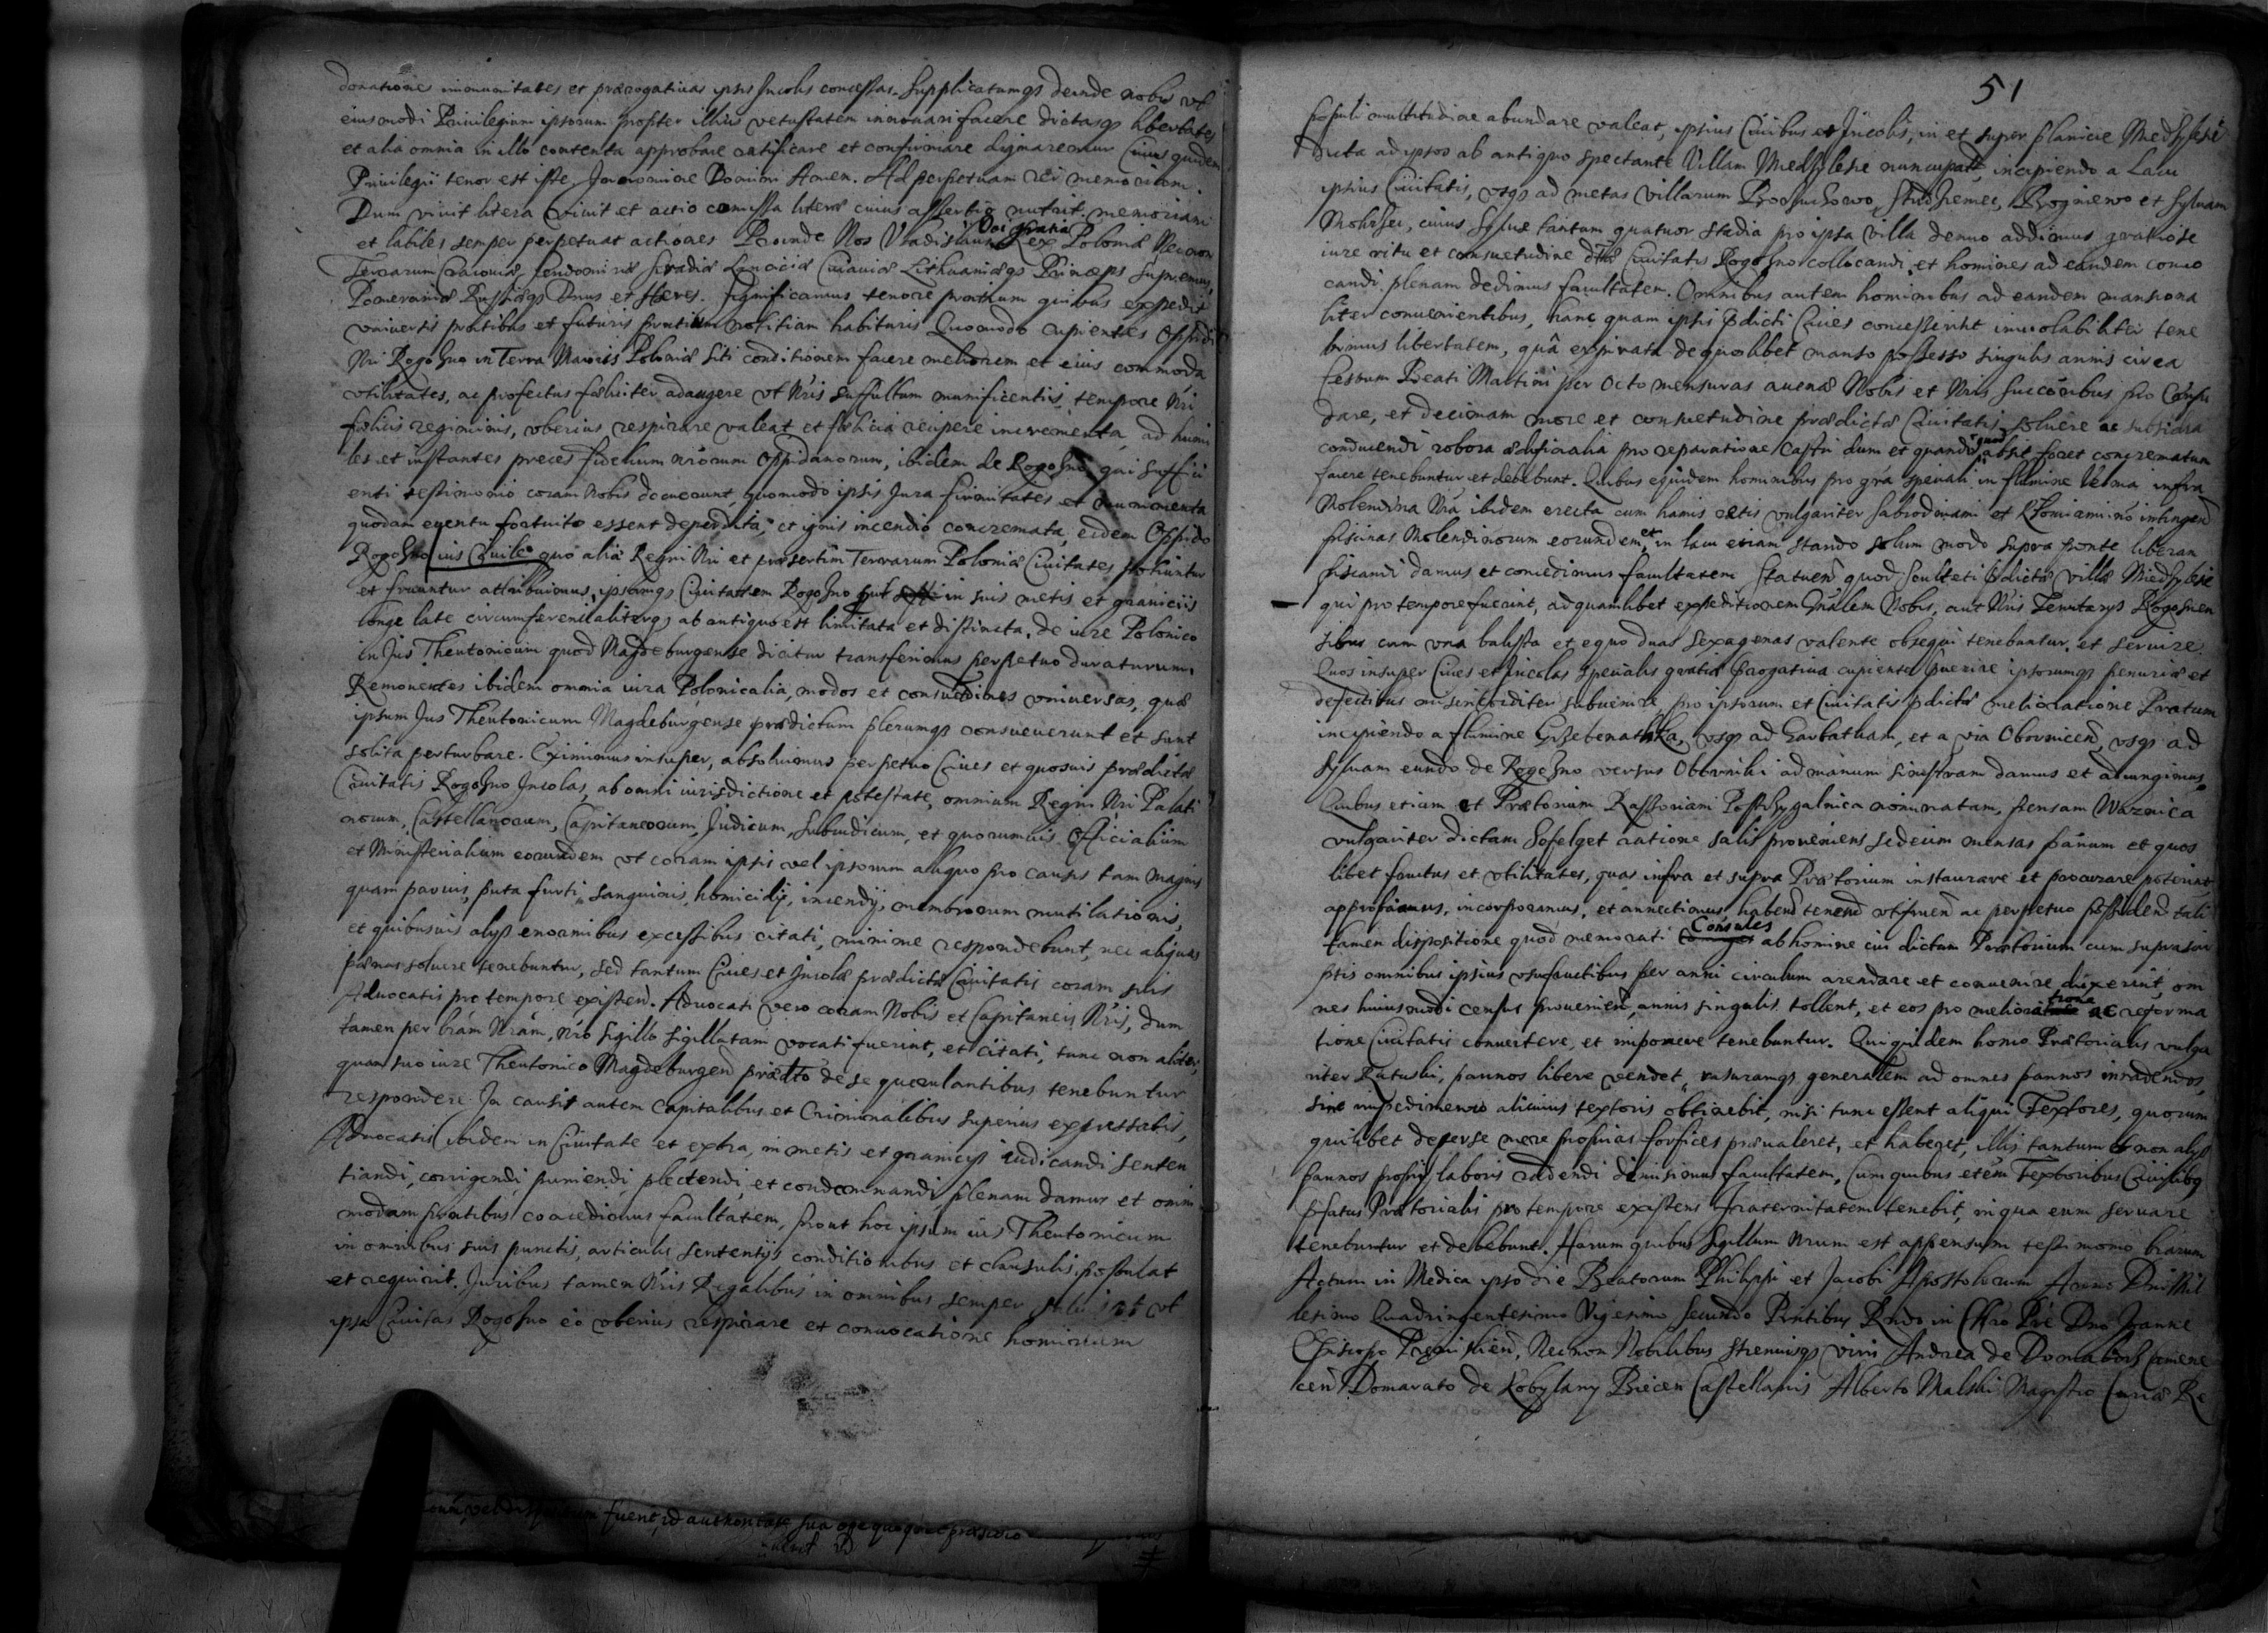 donationes immunitates et praerogativas ipsis Incolis concessas. Supplicatumqȝ deinde nobis vt
eiusmodi Privilegium ipsorum propter illius vetustatem innovari facere dictasqȝ libertates
et alia omnia in illo contenta approbare ratificare et confirmare dignaremur Cuius quidem
Privilegii tenor est iste. In nomine Domini Amen. Ad perpetuam rei memoriam.
Dum vivit litera vivit et actio comissa literae cuius assertio nutrit memoriam
et labiles semper perpetuat actiones Proinde Nos Vladislaus Dei gratia Rex Poloniae Necnon
Terrarum Cracoviae Sendomiriae Siradiae Lanciciae Cuiaviae Lithuaniaeqȝ Princeps Supremus,
Pomeraniae Russiaeqȝ Dnus et Haeres. Significamus tenore praesentium quibus expedit
vniversis pntibus et futuris pntium notitiam habituris Quomodo cupientes Oppidi
Nri Rogoszno in Terra Maioris Poloniae siti conditionem facere meliorem et eius commoda
vtilitates, ac profectus foeliciter adaugere vt Nris suffultum munificentiis tempore Nri
foelicis regiminis, vberius respirare valeat et foelicia recipere incrementa ad humi
les et instantes preces fidelium nrorum Oppidanorum, ibidem de Rogoszno, qui suffici
enti testimonio coram Nobis docuerunt, quomodo ipsis Iura firmitates et munimenta
quodam eventu fortuito essent deperdita, et ignis incendio concremata, eidem Oppido
Rogoszno ius Civile quo aliae Regni Nri et praesertim Terrarum Poloniae Civitates potiuntur
et fruuntur attribuimus, ipsamqȝ Civitatem Rogoszno put in suis metis et graniciis
longe late circumferentialiterqȝ ab antiquo est limitata et distincta, de iure Polonico
in Jus Theutonicum quod Magdeburgense dicitur transferimus perpetuo duraturum,
Removentes ibidem omnia iura Polonicalia, modos et consuetudines vniversas, quae
ipsum Jus Theutonicum Magdeburgense praedictum plerumqȝ consueverunt et sunt
solita perturbare. Eximimus insuper, absolvimus perpetuo Cives et quosvis praedictae
Civitatis Rogoszno Incolas, ab omni iurisdictione et potestate, omnium Regni Nri Palati
norum, Castellanorum, Capitaneorum, Judicum, Subiudicum, et quorumvis Officialium
et Ministerialium eorundem vt coram ipsis vel ipsorum aliquo pro causis tam magnis
quam parvis, puta furti, sanguinis, homicidij, incendij, membrorum mutilationis,
et quibusuis alijs enormibus excessibus citati, minime respondebunt, nec aliquas
paenas solvere tenebuntur, sed tantum Cives et Incolae praedictae Civitatis coram suis
Advocatis pro tempore existen. Advocati vero coram Nobis et Capitaneis Nris, dum
tamen per lram Nram, nro sigillo sigillatam vocati fuerint, et citati, tunc non aliter,
quam suo iure Theutonico Magdeburgen praedto de se querulantibus tenebuntur
respondere. In causis autem Capitalibus et Criminalibus superius expressatis,
Advocatis ibidem in Civitate et extra, in metis et granicijs iudicandi senten
tiandi, corrigendi, puniendi, plectendi, et condemnandi, plenam damus et omni
modam pntibus concedimus facultatem, prout hoc ipsum ius Theutonicum
in omnibus suis punctis, articulis sententijs conditionibus et clausulis, postulat
et requirit. Juribus tamen Nris Regalibus in omnibus semper salvis et vt
ipsa Civitas Rogoszno eo vberius respirare et convocatione hominum
fuerit, id authoritate sua
51
populi multitudine abundare valeat, ipsius Civibus et Incolis, in et super planicie Medzylesie
dicta ad ipsos ab antiquo spectante Villam Medzylesie nuncupatam, incipiendo a Lacu
ipsius Civitatis, vsqȝ ad metas villarum Prochnowo, Studzeniec, Rogniewo et Sylvam
Mokrssec, cuius Sylvae tantum quatuor stadia pro ipsa villa denuo addimus gratiose
iure ritu et consuetudine dtae Civitatis Rogoszno collocandi et homines ad eandem convo
candi plenam dedimus facultatem. Omnibus autem hominibus ad eandem mansiona
liter convenientibus, hanc quam ipsis pdicti Cives concesserint inviolabiliter tene
bimus libertatem, quâ expirata de quolibet manso possesso singulis annis circa
Festum Beati Martini per Octo mensuras avenae Nobis et Nris Succoribus pro Censu
dare, et decimam more et consuetudine praedictae Civitatis solvere ac subsidia
conducendi robora aedificialia pro reparatione Castri dum et quando quod absit foret concrematum
facere tenebuntur et debebunt. Quibus equidem hominibus pro gra speciali in flumine Velna infra
Molendina Nra ibidem erecta cum hamis retis vulgariter Sabrodniami et Kłomiami no intingend
piscinas Molendinorum eorundem, et in lacu etiam stando solum modo supra ponte liberam
piscandi damus et concedimus facultatem Statuen quod Sculteti pdictae villae Miedzylesie
qui pro tempore fuerint, ad quamlibet expeditionem Gnalem Nobis, aut Nris Tenutarijs Rogosnen
sibus cum vna balista et equo duas sexagenas valente obsequi tenebuntur et servire.
Quos insuper Cives et Incolas specialis gratiae prerogativa cupientes pvenire ipsorumqȝ penuriae et
defectibus misericorditer subvenire pro ipsorum et Civitatis pdictae melioratione Pratum
incipiendo a flumine Grzebenathka, vsqȝ ad Garbatham, et a via Obornicen, vsqȝ ad
Sylvam eundo de Rogoszno versus Oborniki ad manum sinistram damus et adiungimus.
Quibus etiam et Praetorium Rasthoriam Postrzygalnica nominatam, pensam Waznica
vulgariter dictam Sofelget ratione salis proveniens sedecim mensas panum et quos
libet fructus et vtilitates, quas infra et supra Praetorium instaurare et procurare poterint
appropiamus, incorporamus, et annectimus, habend tenend vtifruend ac perpetuo possidend tali
tamen dispositione quod memorati Consules ab homine cui dictum Praetorium cum suprascri
ptis omnibus ipsius vsufructibus per anni circulum arendare et convenire duxerint, om
nes huiusmodi census provenien, annis singulis tollent, et eos pro melioratione ac reforma
tione Civitatis convertere, et imponere tenebuntur. Qui quidem homo Praetorialis vulga
riter Ratuski, pannos libere vendet, rasuramqȝ generalem ad omnes pannos inradendos,
sine impedimento alicuius textoris obtinebit, nisi tunc essent aliqui Textores, quorum
quilibet de perse mere proprias forfices praevaleret, et haberet, illis tantum et non alijs
pannos proprij laboris radendi dimisimus facultatem, Cum quibus etem Textoribus Civilibȝ
pfatus Praetorialis pro tempore existens fraternitatem tenebit, in qua eum servare
tenebuntur et debebunt. Harum quibus Sigillum Nrum est appensum testimonio lrarum
Actum in Medica ipso die Beatorum Philippi et Jacobi Apostolorum Anno Dni Mil
lesimo Quadringentesimo Vigesimo Secundo Pntibus Rndo in Chro Pre Dno Joanne
Episcopo Premislien, Necnon Nobilibus Strenuisqȝ viris Andrea de Domaborz Camene
cen Domarato de Kobylany Biecen Castellanis Alberto Malski Magistro Curiae Re